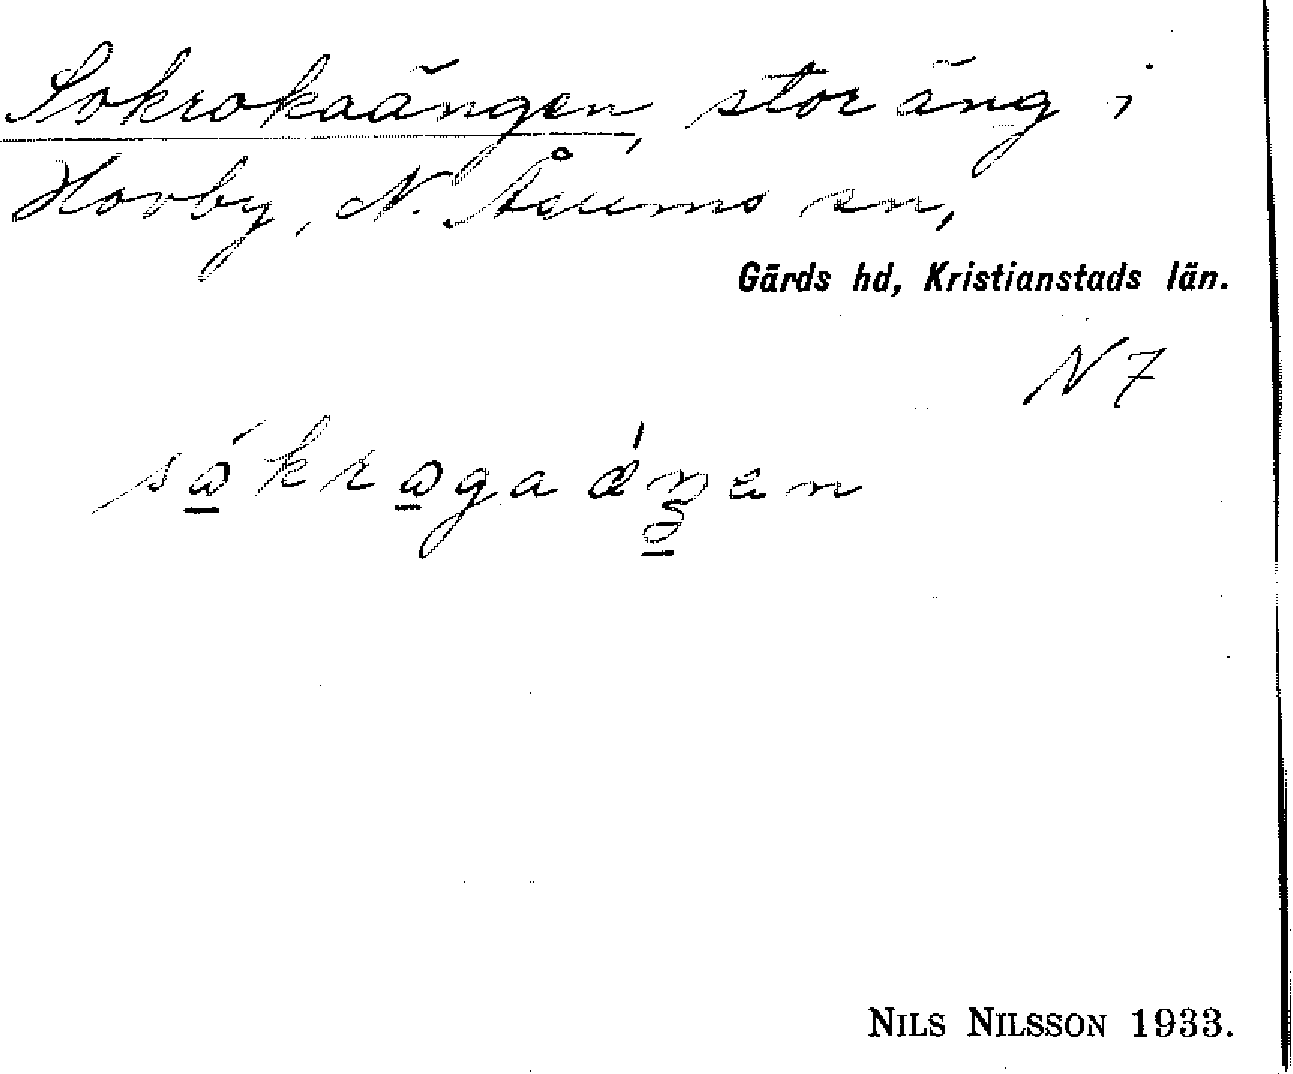 Sokrokaängen, stor äng i
Hovby, N. Åsums sn,
Gärds hd, Kristianstads län.
N 7
NILS NILSSON 1933.